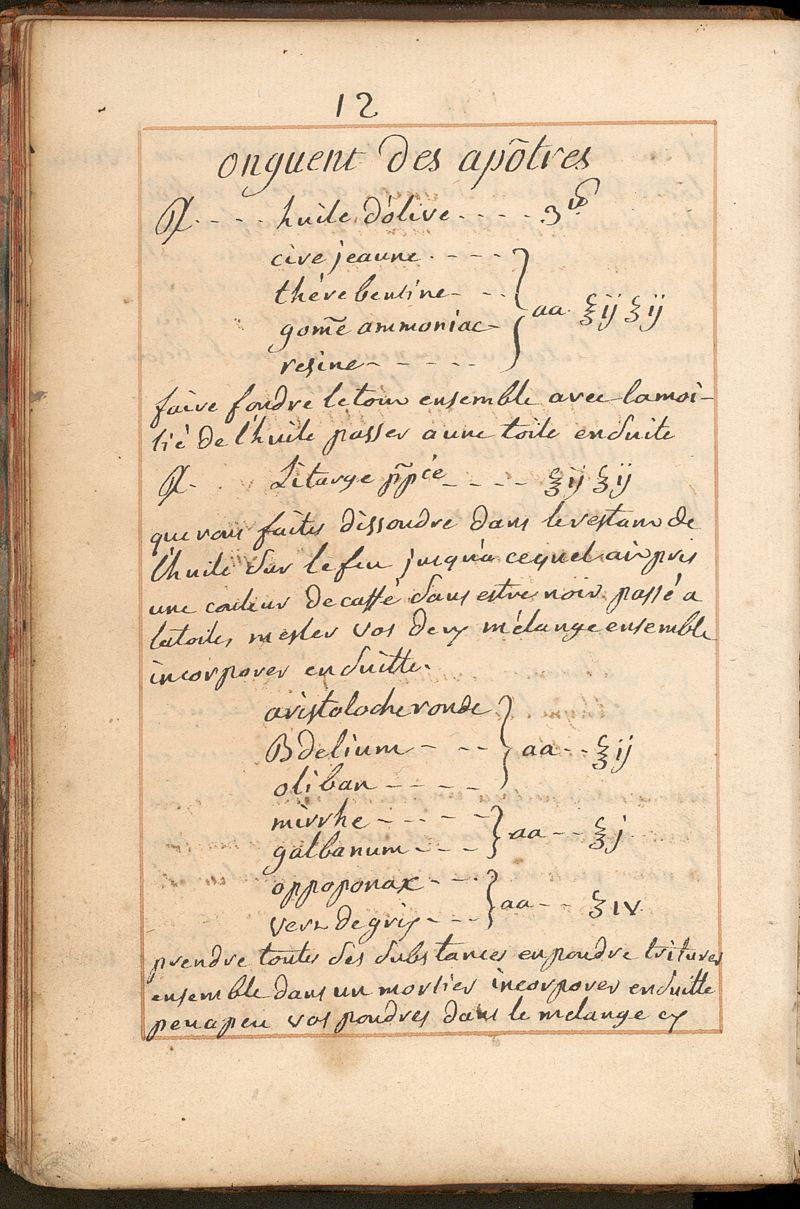 12
onguent des apôtres
℞. - - - - huile d'olive - - - - 3 ℔
cire jeaune - - - -
thérebentine - - -
gom̃e ammoniac - } aa ℥ij ℥ij
resine - - - - -
faire fondre le tout ensemble avec la moi-
tié de l'huile passer a une toile ensuite
℞. Litarge pp̃cée - - - - ℥ij ℥ij
que vous faites dissoudre dans le restant de
l'huile sur le feu jusqu'a ce quel ait pris
une couleur de caffé sans estre noir passé a
la toile, mesler vos deux mélange ensemble
incorporer ensuitte.
aristoloche ronde
Bdelium - - - } aa - - ℥ij
oliban - - - -
mirrhe - - - - -
galbanum - - - } aa - - ℥j
oppoponax - - -
verz de gris - - - } aa - - ℥IV
prendre toutes ses substances en poudre triturer
ensemble dans un mortier incorporer ensuitte
peu a peu vos poudres dans le mélange ex